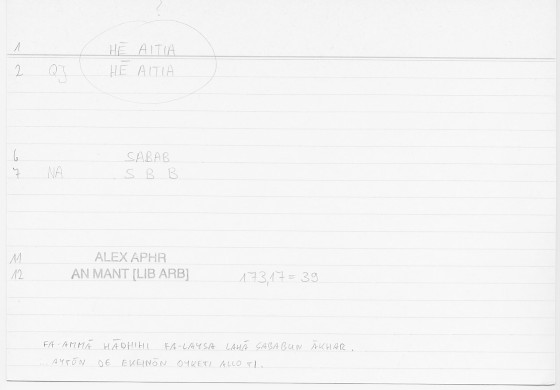 ?
1 HĒ AITIA
2 QJ HĒ AITIA
6 SABAB
7 NA S B B
11 ALEX APHR
12 AN MANT [LIB ARB] 173,17 = 39
FA-AMMĀ HĀDHIHI FA-LAYSA LAHĀ SABABUN ĀKHAR.
AYTŌN DE EKEINŌN OYKETI ALLO TI.